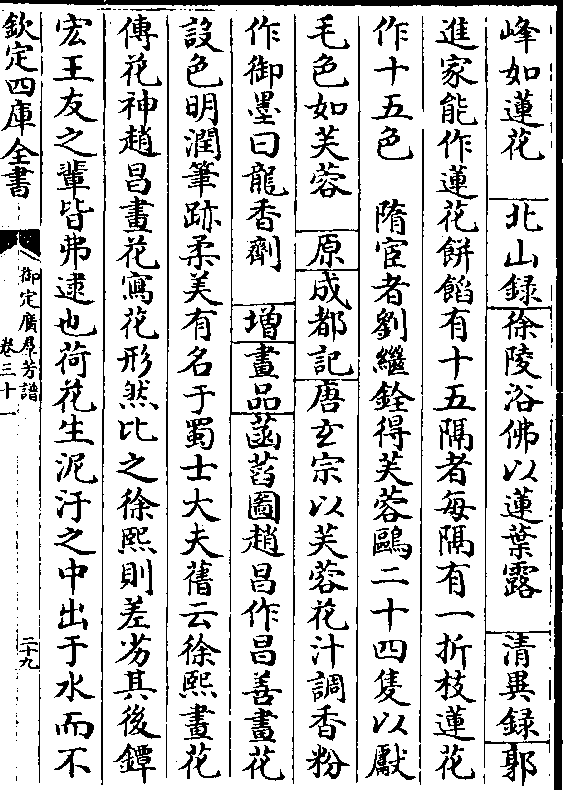 峰如蓮花　北山録徐陵浴佛以蓮葉露　清異録郭
進家能作蓮花餅餡有十五隔者每隔有一折枝蓮花
作十五色　隋宦者劉繼銓得芙蓉鷗二十四隻以獻
毛色如芙蓉　原成都記唐玄宗以芙蓉花汁調香粉
作御墨曰龍香劑　增畫品菡萏圖趙昌作昌善畫花
設色明潤筆跡柔美有名于蜀士大夫舊云徐熙畫花
傳花神趙昌畫花寫花形然比之徐熙則差劣其後鐔
宏王友之輩皆弗逮也荷花生泥汙之中出于水而不
欽定四庫全書
御定廣羣芳譜
卷三十
二十九